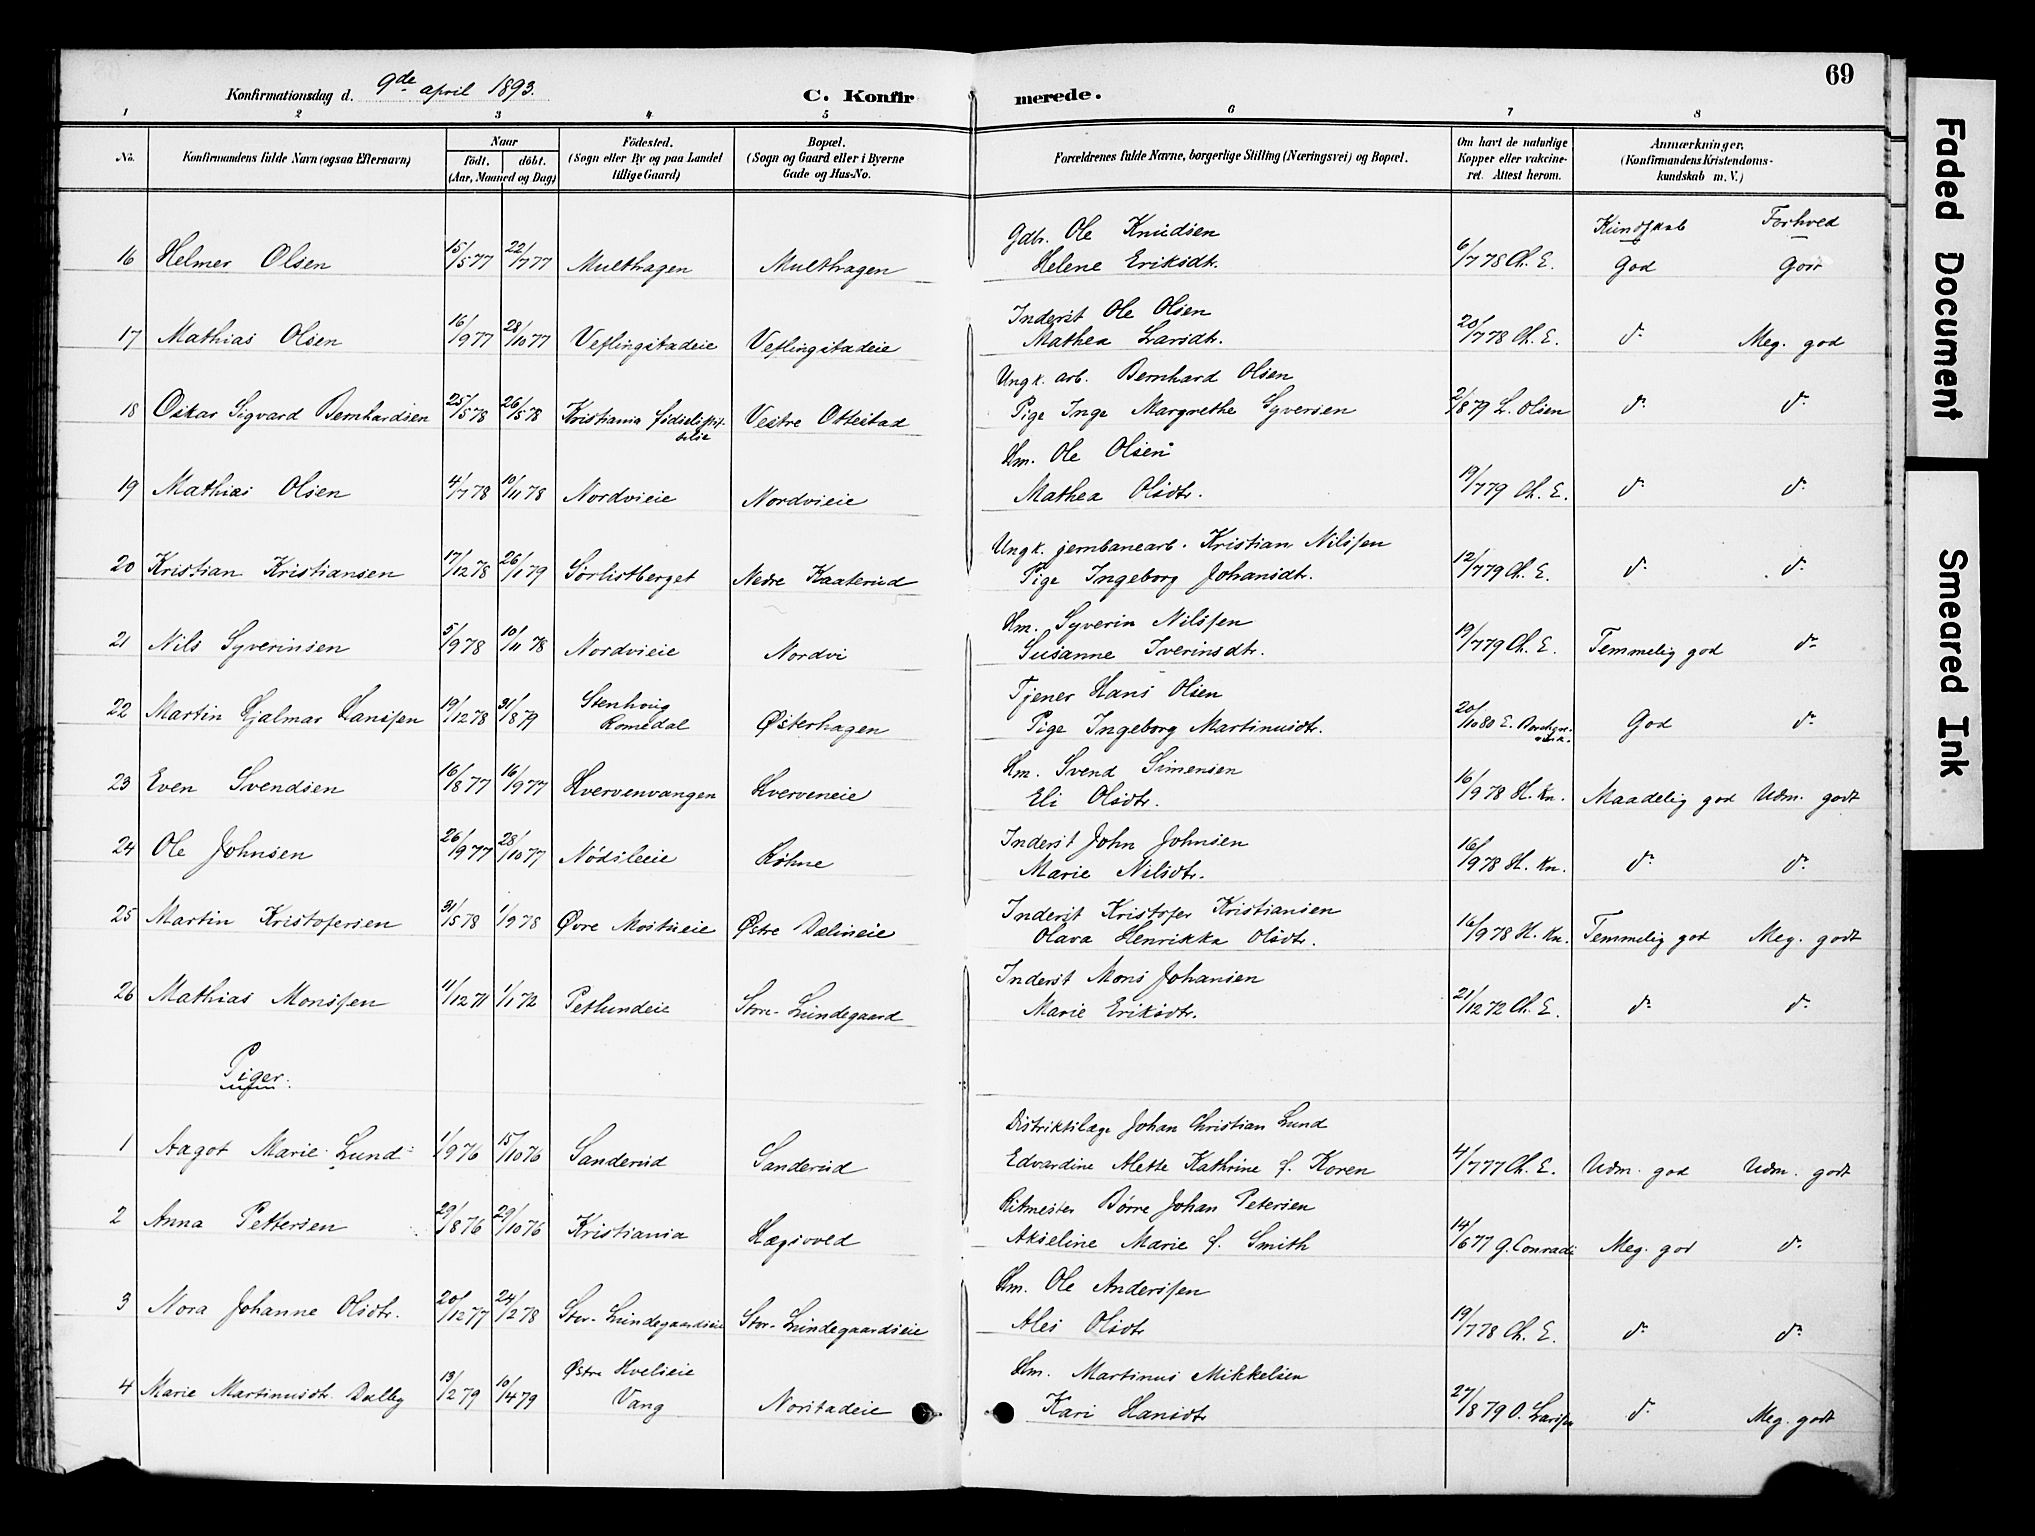 Konfirmationsdag d. 9de april 1893.
C. Konfirmerede.
69
1 2 3 4 5 6 7 8
No. Konfirmandens fulde Navn (ogsaa Efternavn) Naar født. døbt. (Aar, Maaned og Dag) Fødested. (Sogn eller By og paa Landet tillige Gaard) Bopæl. (Sogn og Gaard eller i Byerne Gade og Hus-No. Forældrenes fulde Navne, borgerlige Stilling (Næringsvei) og Bopæl. Om havt de naturlige Kopper eller vakcineret. Attest herom. Anmærkninger. (Konfirmandens Kristendomskundskab m. V.)
Kundskab Forhold
16 Helmer Olsen 15/5 77 22/7 77 Multhagen Multhagen Gdbr. Ole Knudsen
Helene Eriksdt. 6/7 78 Ch. E. God Godt
17 Mathias Olsen 16/9 77 28/10 77 Veflingstadeie Veflingstadeie Inderst Ole Olsen
Mathea Larsdt. 20/7 78 Ch. E. do Meg. god
18 Oskar Sigvard Bernhardsen 25/5 78 26/5 78 Kristiania fødselsstiftelse Vestre Ottestad Ungk. arb. Bernhard Olsen
Pige Inge Margrethe Syversen 2/8 79 L. Olsen do do
19 Mathias Olsen 4/7 78 10/11 78 Nordvieie Nordvieie Hm. Ole Olsen
Mathea Olsdtr. 19/7 79 Ch. E. do do
20 Kristian Kristiansen 17/12 78 26/1 79 Sørlistberget Nedre Kaaterud Ungk. jernbanearb. Kristian Nilssen
Pige Ingeborg Johansdt. 12/7 79 Ch. E. do do
21 Nils Syverinsen 5/9 78 10/11 78 Nordvieie Nordvi Hm. Syverin Nilssen
Susanne Iverinsdtr. 19/7 79 Ch. E. Temmelig god do
22 Martin Hjalmar Hanssen 19/12 78 31/8 79 Stenhoug Romedal Østerhagen Tjener Hans Olsen
Pige Ingeborg Martinusdtr. 20/10 80 E. God do
23 Even Svendsen 16/8 77 16/9 77 Hvervenvangen Hverveneie Hm. Svend Simensen
Eli Olsdtr. 16/9 78 H. Kn. Maadelig god Udm. godt
24 Ole Johnsen 26/9 77 28/10 77 Nødsleeie Røhne Inderst John Johnsen
Marie Nilsdtr. 16/9 78 H. Kn. do do
25 Martin Kristofersen 31/5 78 1/9 78 Øvre Mostueie Østre Dalineie Inderst Kristofer Kristiansen
Olava Henrikka Olsdtr. 16/9 78 H. Kn. Temmelig god Meg. godt
26 Mathias Monssen 11/12 71 1/1 72 Petlundeie Store-Lundegaard Inderst Mons Johansen
Marie Eriksdtr. 21/12 72 Ch. E. do do
Piger.
1 Aagot Marie Lund 1/9 76 15/10 76 Sanderud Sanderud Distriktslæge Johan Christian Lund
Edvardine Alette Kathrine f. Koren 4/7 77 Ch. E. Udm. god Udm. godt
2 Anna Pettersen 29/8 76 29/10 76 Kristiania Hægsvved Ritmester Børre Johan Petersen
Akseline Marie f. Smith 14/6 77 G. Conradi Meg. god do
3 Nora Johanne Olsdtr. 20/12 77 24/2 78 Stor-Lundegaardseie Stor-Lundegaardseie Hm. Ole Anderssen
Ales Olsdtr 19/7 78 Ch. E. do do
4 Marie Martinusdtr. Dalby 13/2 79 10/4 79 Østre Hvelseie Vang Norstadeie Hm. Martinus Mikkelsen
Kari Hansdtr 27/8 79 O. Larssen do Meg. godt
Faded Document
Smeared Ink